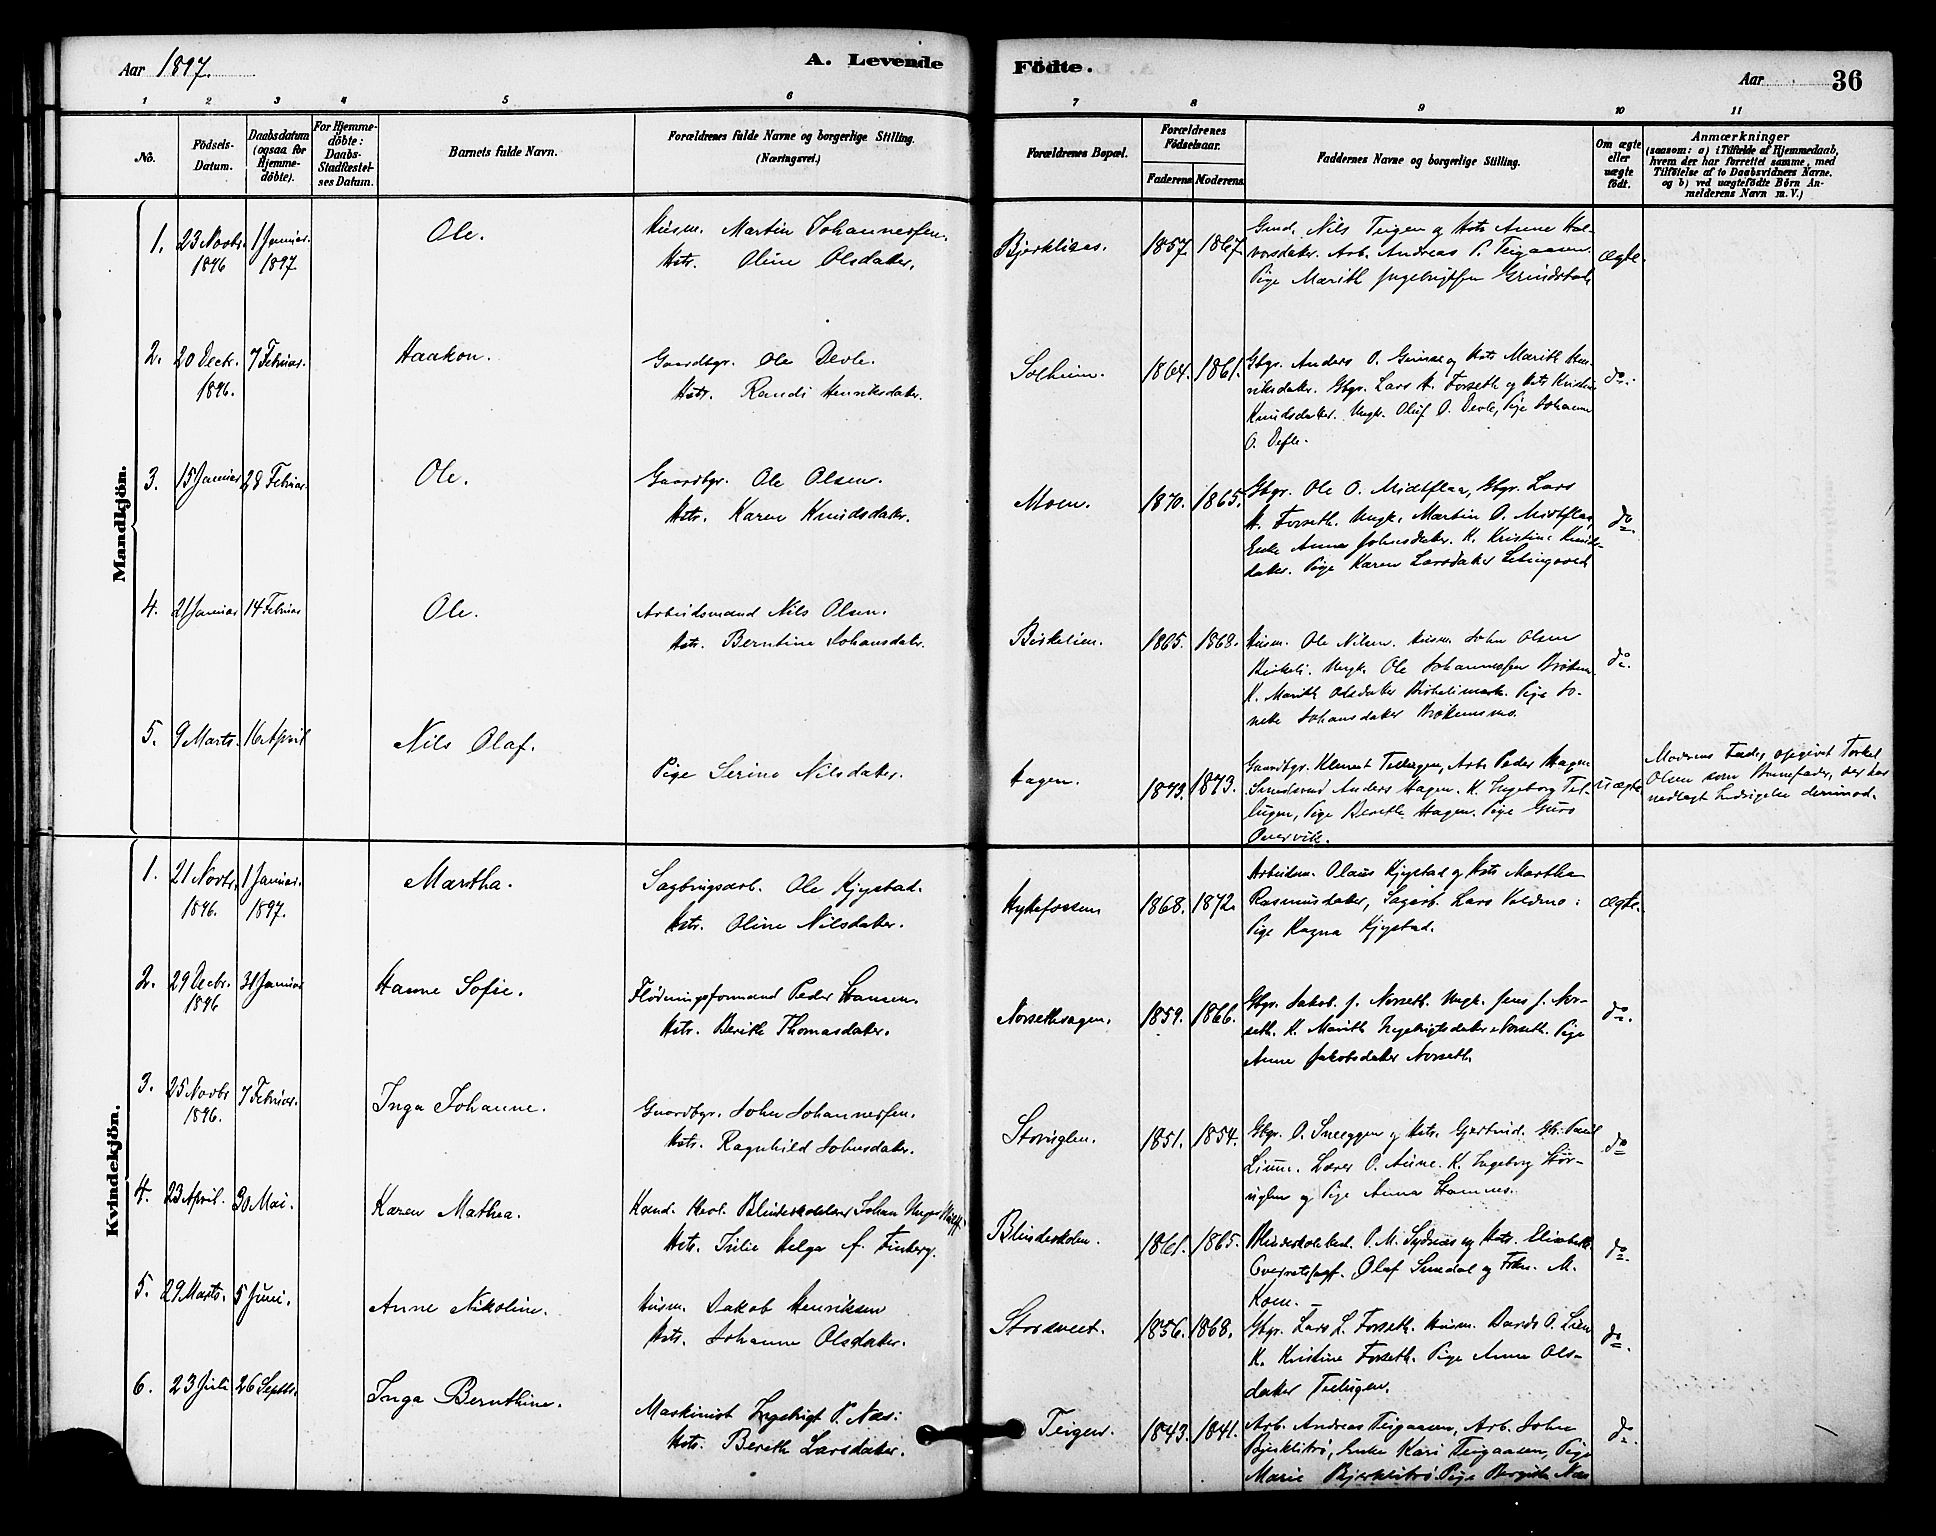 Aar 1897.
A. Levende Födte.
Aar 36
1 2 3 4 5 6 7 8 9 10 11
No.
Födsels-
Datum.
Daabsdatum
(ogsaa for
Hjemme-
döbte).
For Hjemme-
döbte:
Daabs-
Stadfæstel-
ses Datum.
Barnets fulde Navn.
Forældrenes fulde Navne og borgerlige Stilling.
(Næringsvei.)
Forældrenes Bopæl.
Forældrenes
Födselsaar.
Faderens Moderens
Faddernes Navne og borgerlige Stilling.
Om ægte
eller
uægte
födt.
Anmærkninger
(saasom: a) i Tilfælde af Hjemmedaab,
hvem der har forrettet samme, med
Tilföielse af to Daabsvidners Navne.
og b) ved uægtefödte Börn An-
melderens Navn m. V.)
Mandkjön.
1. 23 Novbr. 1896 1 Januar. 1897 Ole.
Husm. Martin Johannessen.
Hstr. Oline Olsdatter.
1857. 1867.
Gmd. Nils Teigen og Hst. Anne Hal-
vorsdatter. Arb. Andreas P. Teigaasen.
Pige Marith Ingebrigtsen
Ægte.
2. 20 Decbr. 1896. 7 Februar. Haakon.
Gaardbgr. Ole Devle.
Hstr. Randi Henriksdatter.
Solheim.
1864. 1861.
Gbgr. Anders O. og Hst. Marith Hen-
riksdatter. Gbgr. Lars H. Forseth og Hst. Kristine
Knudsdatter. Ungk. Oluf O. Devle, Pige Johanne
O. Defle.
do.
3. 15 Januar 28 Februar. Ole.
Gaardbgr. Ole Olsen.
Hstr. Karen Knudsdatter.
Moen.
1870. 1865.
Gbgr. Ole O. Midtflaa, Gbgr. Lars
H. Forseth. Ungk. Martin O. Midtflaa,
Enke Anne Johnsdatter. K. Kristine Knuds-
datter. Pige Karen Larsdatter
do.
4. 21 Januar 14 Februar Ole.
Arbeidsmand Nils Olsen.
Hstr. Berntine Johansdatr.
Birkelien.
1865. 1868.
Husm. Ole Nilsen. Husm. John Olsen
Birkeli. Ungk. Ole Johannessen
K. Marith Olsdatter Pige Jo-
nette Johansdatter
do.
5. 9 Marts. 16 April Nils Olaf.
Pige Serine Nilsdatter.
Hagen.
1873. 1873.
Gaardbgr. Klement Tellugen, Arb. Peder Hagen
Anders Hagen. K. Ingeborg Tel-
lugen, Pige Bereth Hagen. Pige Guro
Overvik.
Uægte.
Moderens Fader opgivet Torkel
Olsen som Barnefader, der har
nedlagt Indsigelse derimod.
Kvindekjön.
1. 21 Novbr. 1896. 1 Januar. 1897. Martha.
Sagbrugsarb. Ole Kjystad.
Hstr. Oline Nilsdatter.
Hyttefossen
1868. 1872.
Arbeidsm. Olaus Kjystad og Hst. Martha
Rasmusdatter, Sagarb. Lars Voldmo.
Pige Ragna Kjystad.
Ægte.
2. 29 Decbr. 1896 31 Januar Hanne Sofie.
Flödningsformand Peder Hansen.
Hstr. Berith Thomasdatter.
Norsethsagen.
1859. 1866.
Gbgr. Jakob J. Norseth. Ungk. Jens J. Nor-
seth. K. Marith Ingebrigtsdatter Norseth. Pige
Anne Jakobsdatter Norseth.
do.
3. 25 Novbr 1896. 7 Februar. Inga Johanne.
Gaardbgr. John Johannessen.
Hstr. Ragnhild Johnsdatter.
Storuglen.
1851. 1854.
Gbgr. O. Sneeggen og Hst. Gjertrud. Gbr. Paul
Lium. Lærer O. Aune. K. Ingeborg Stor-
uglen og Pige Anna Hamnes.
do
4. 23 April. 30 Mai. Karen Mathea.
Kand. theol. Johan Unger
Hstr. Julie Helga f. Finberg.
Blindeskolen.
1861. 1865.
P. M. og Hst. Elisabeth
Olaf og Frkn. M.
Koen.
do.
5. 29 Marts. 5 Juni. Anne Nikoline.
Husm. Jakob Henriksen
Hstr. Johanne Olsdatter.
1856. 1868.
Gbgr. Lars L. Forseth. Husm. David O. Lien
K. Kristine Forseth. Pige Anne Ols-
datter Tellugen.
do.
6. 23 Juli 26 Septbr. Inga Bernthine.
Maskinist Ingebrigt P. Næs.
Hstr. Bereth Larsdatter.
Teigen.
1843. 1841.
Arb. Andreas Teigaasen, Arb. John
Bjerklibrö, Enke Kari Teigaasen, Pige
Marie Bjerklibrö. Pige Næs
do.